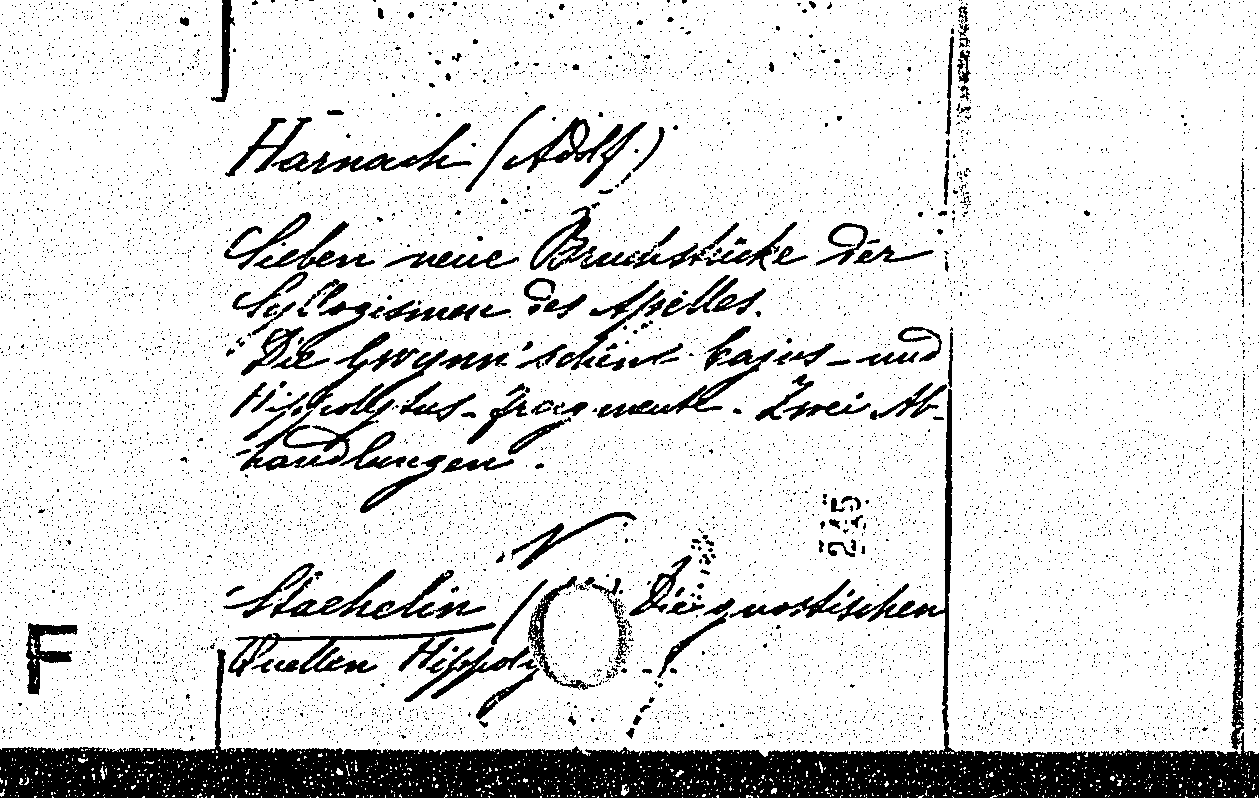 Harnack (Adolf.)
Sieben neue Bruchstücke der
Syllogismen des Apelles.
Die Gwynn'schen Cajus- und
Hippolytus-Fragmente. Zwei Ab-
handlungen.
V
245
Staehelin ( Die gnostischen
Quellen Hippoly
F